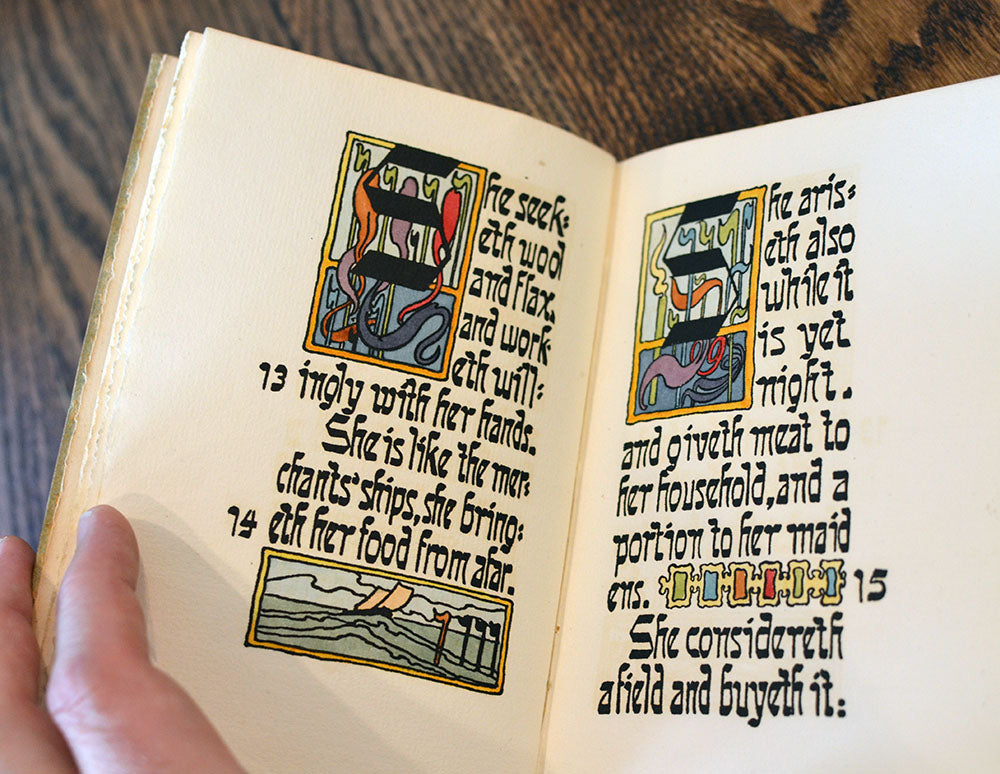 She seek:
eth wool
and flax,
and work
eth will:
13 ingly with her hands.
She is like the mer:
chants' ships, she bring:
14 eth her food from afar.
She aris:
eth also
while it
is yet
night.
and giveth meat to
her household, and a
portion to her maid
ens. 15
She considereth
a field and buyeth it: